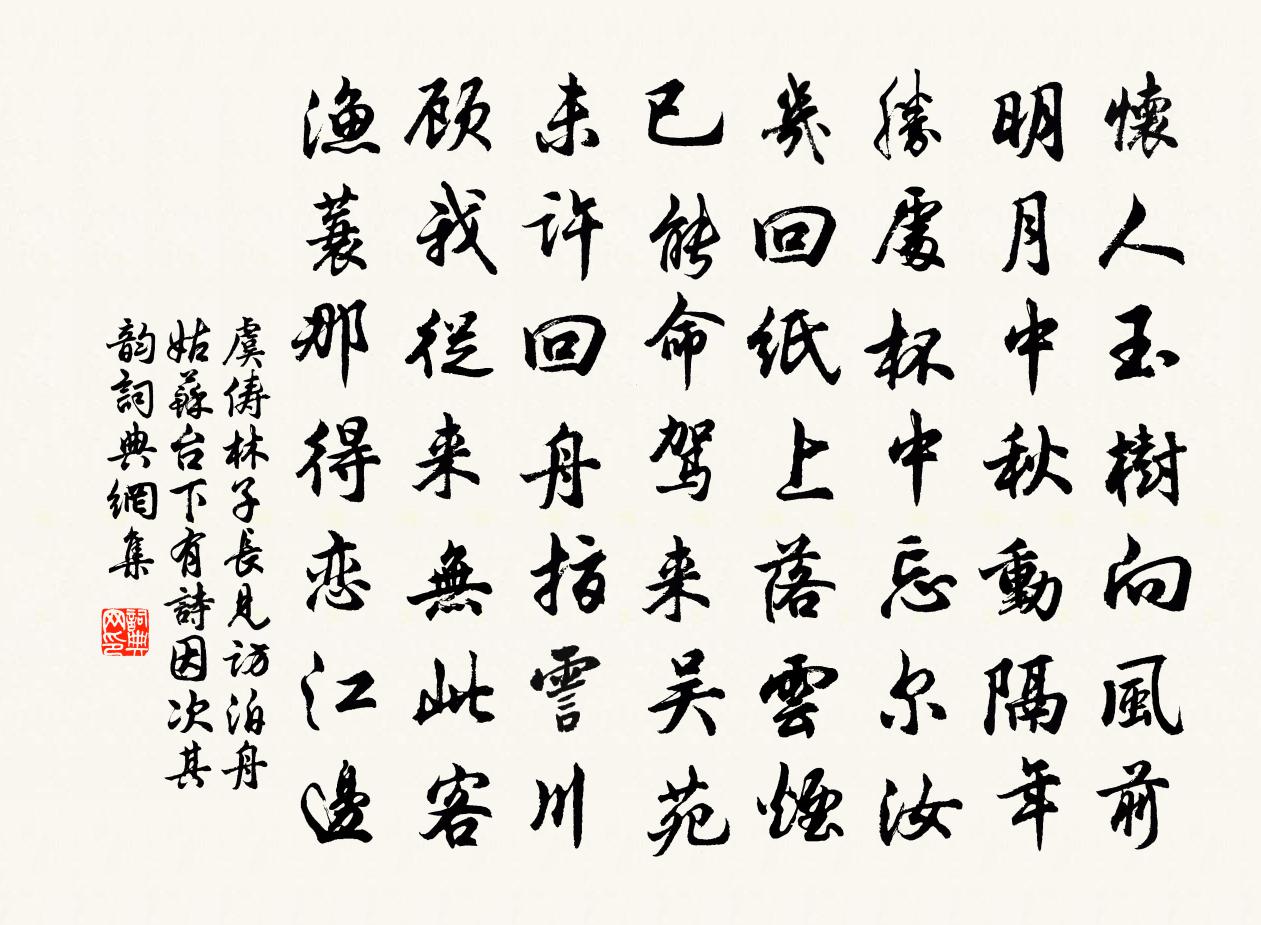 懷人玉樹向風前
明月中秋動隔年
勝處杯中忘尔汝
幾回紙上落雲煙
已能命駕来吴苑
未許回舟指霅川
顾我從来無此客
漁蓑那得恋江邊
虞儔林子長見訪泊舟
姑蘇台下有詩因次其
韵詞典網集
詞典
网印